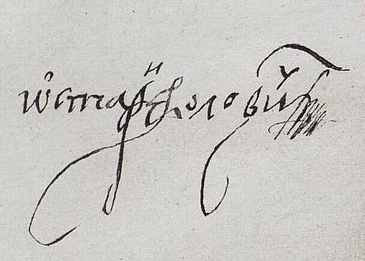 ѡстафеи волович